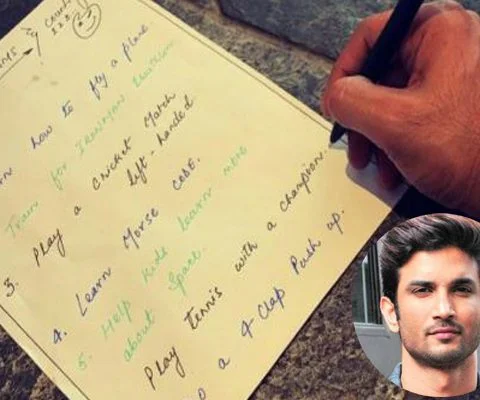 how to fly a plane
Train for IRONMAN triathlon
3. Play a cricket Match
left-handed
4. Learn Morse Code.
5. Help kids learn more
about Space.
Play tennis with a champion
a 4-Clap Push up.